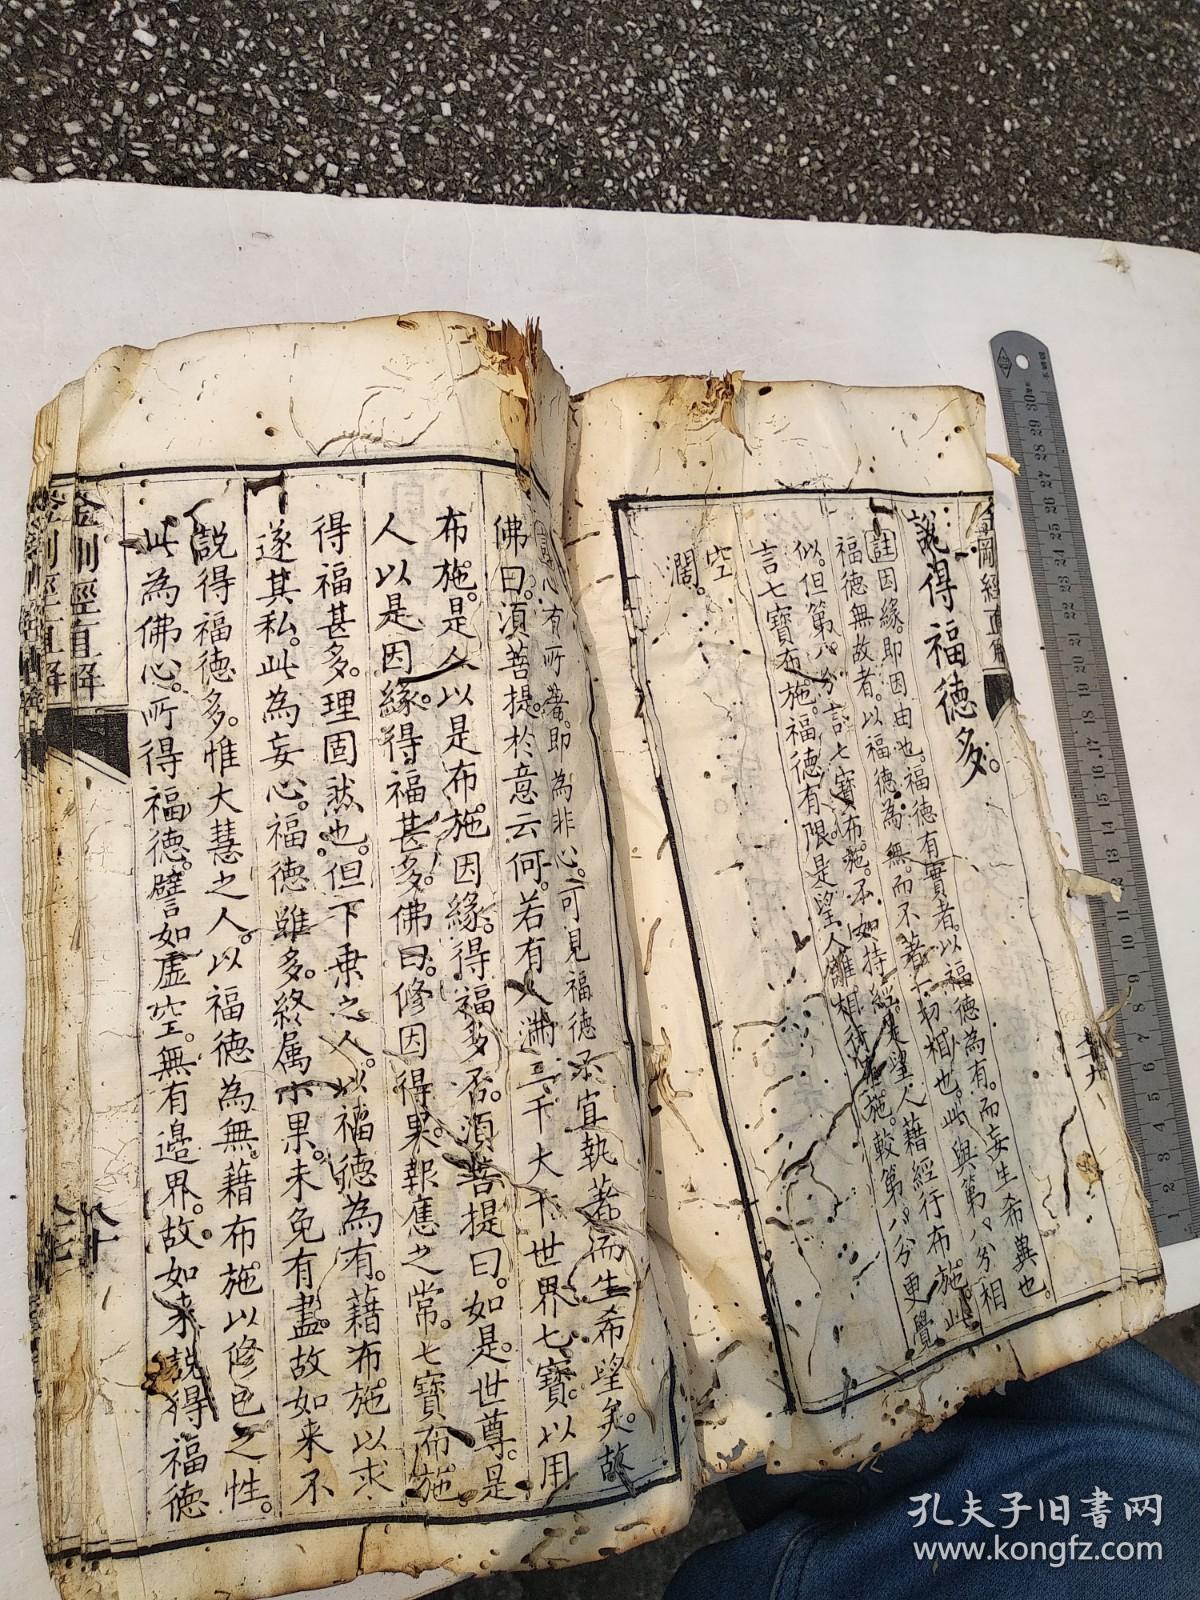 金剛經直解
說得福德多。
註因緣。即因由也。福德有實者。以福德為有。而妄生希冀也。
福德無故者。以福德為無。而不著一切相也。此與第八分相
似。但第八分言七寶布施。不如持經。是望人藉經行布施。此
言七寶布施。福德有限。是望人離相行布施。較第八分更覺
空
濶。
心有所著。即為非心。可見福德不宜執著而生希望矣。故
佛曰。須菩提。於意云何。若有人滿三千大千世界七寶。以用
布施。是人以是布施因緣。得福多否。須菩提曰。如是。世尊。是
人以是因緣。得福甚多。佛曰。修因得果。報應之常。七寶布施
得福甚多。理固然也。但下乘之人。以福德為有。藉布施以求
遂其私。此為妄心。福德雖多。終属小果。未免有盡。故如来不
說得福德多。惟大慧之人。以福德為無。藉布施以修色之性。
此為佛心。所得福德。譬如虛空。無有邊界。故如来說得福德
金剛經直解
30 29 28 27 26 25 24 23 22 21 20 19 18 17 16 15 14 13 12 11 10 9 8 7 6 5 4 3 2 1
孔夫子旧書网
www.kongfz.com